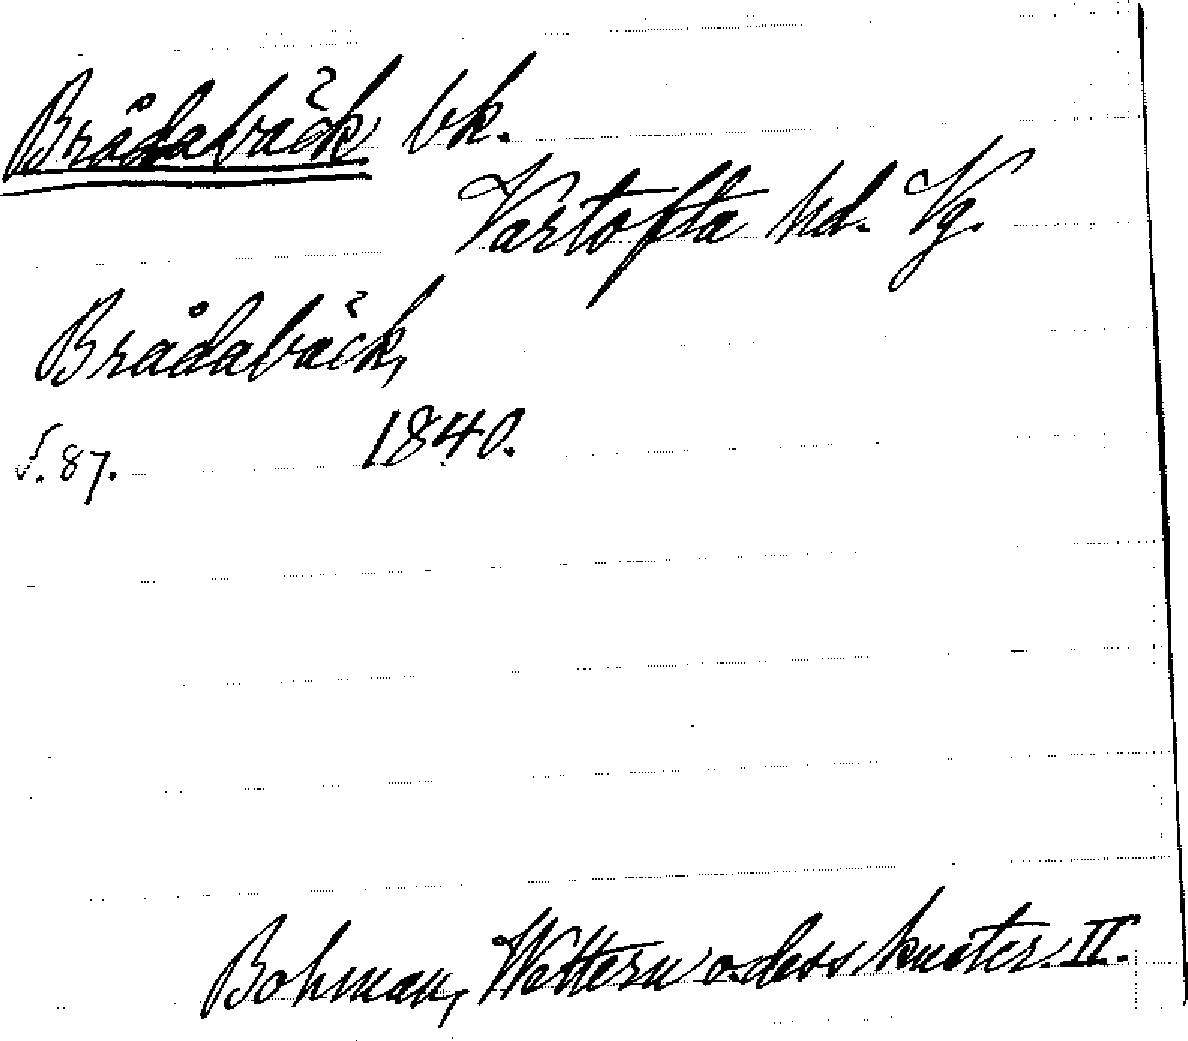 Brådabäck bk.
Vartofta hd. Vg.
Brådabäck,
s. 87. 1840.
Bohman, Wettern o. dess kuster. II.